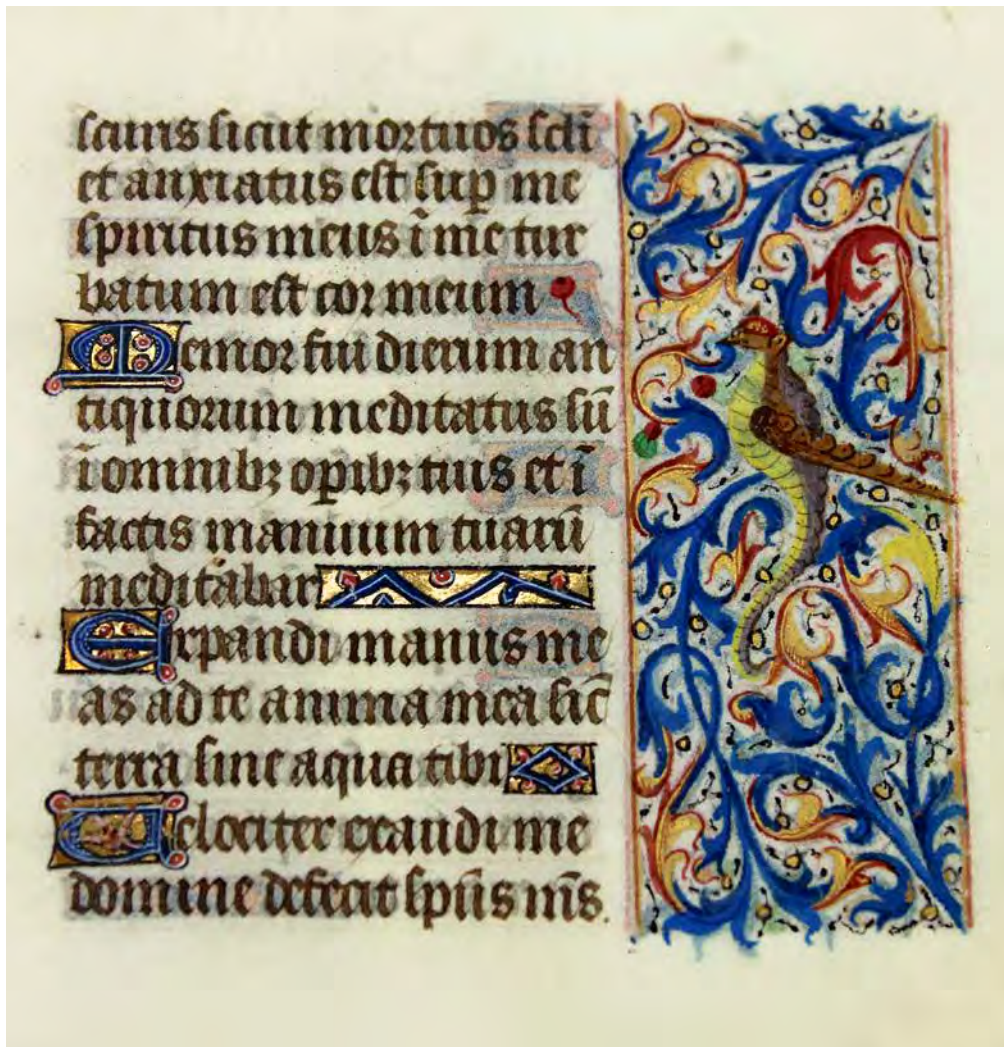 scuris sicut mortuos scli
et anxiatus est sup me
spiritus meus ī me tur
batum est cor meum
Memor fui dierum an
tiquorum meditatus sū
ī omnibꝫ opibꝫ tuis et ī
factis manuum tuarū
meditabar
Expandi manus me
as ad te anima mea sic
terra sine aqua tibi
Velociter exaudi me
domine defecit spūs mēs.